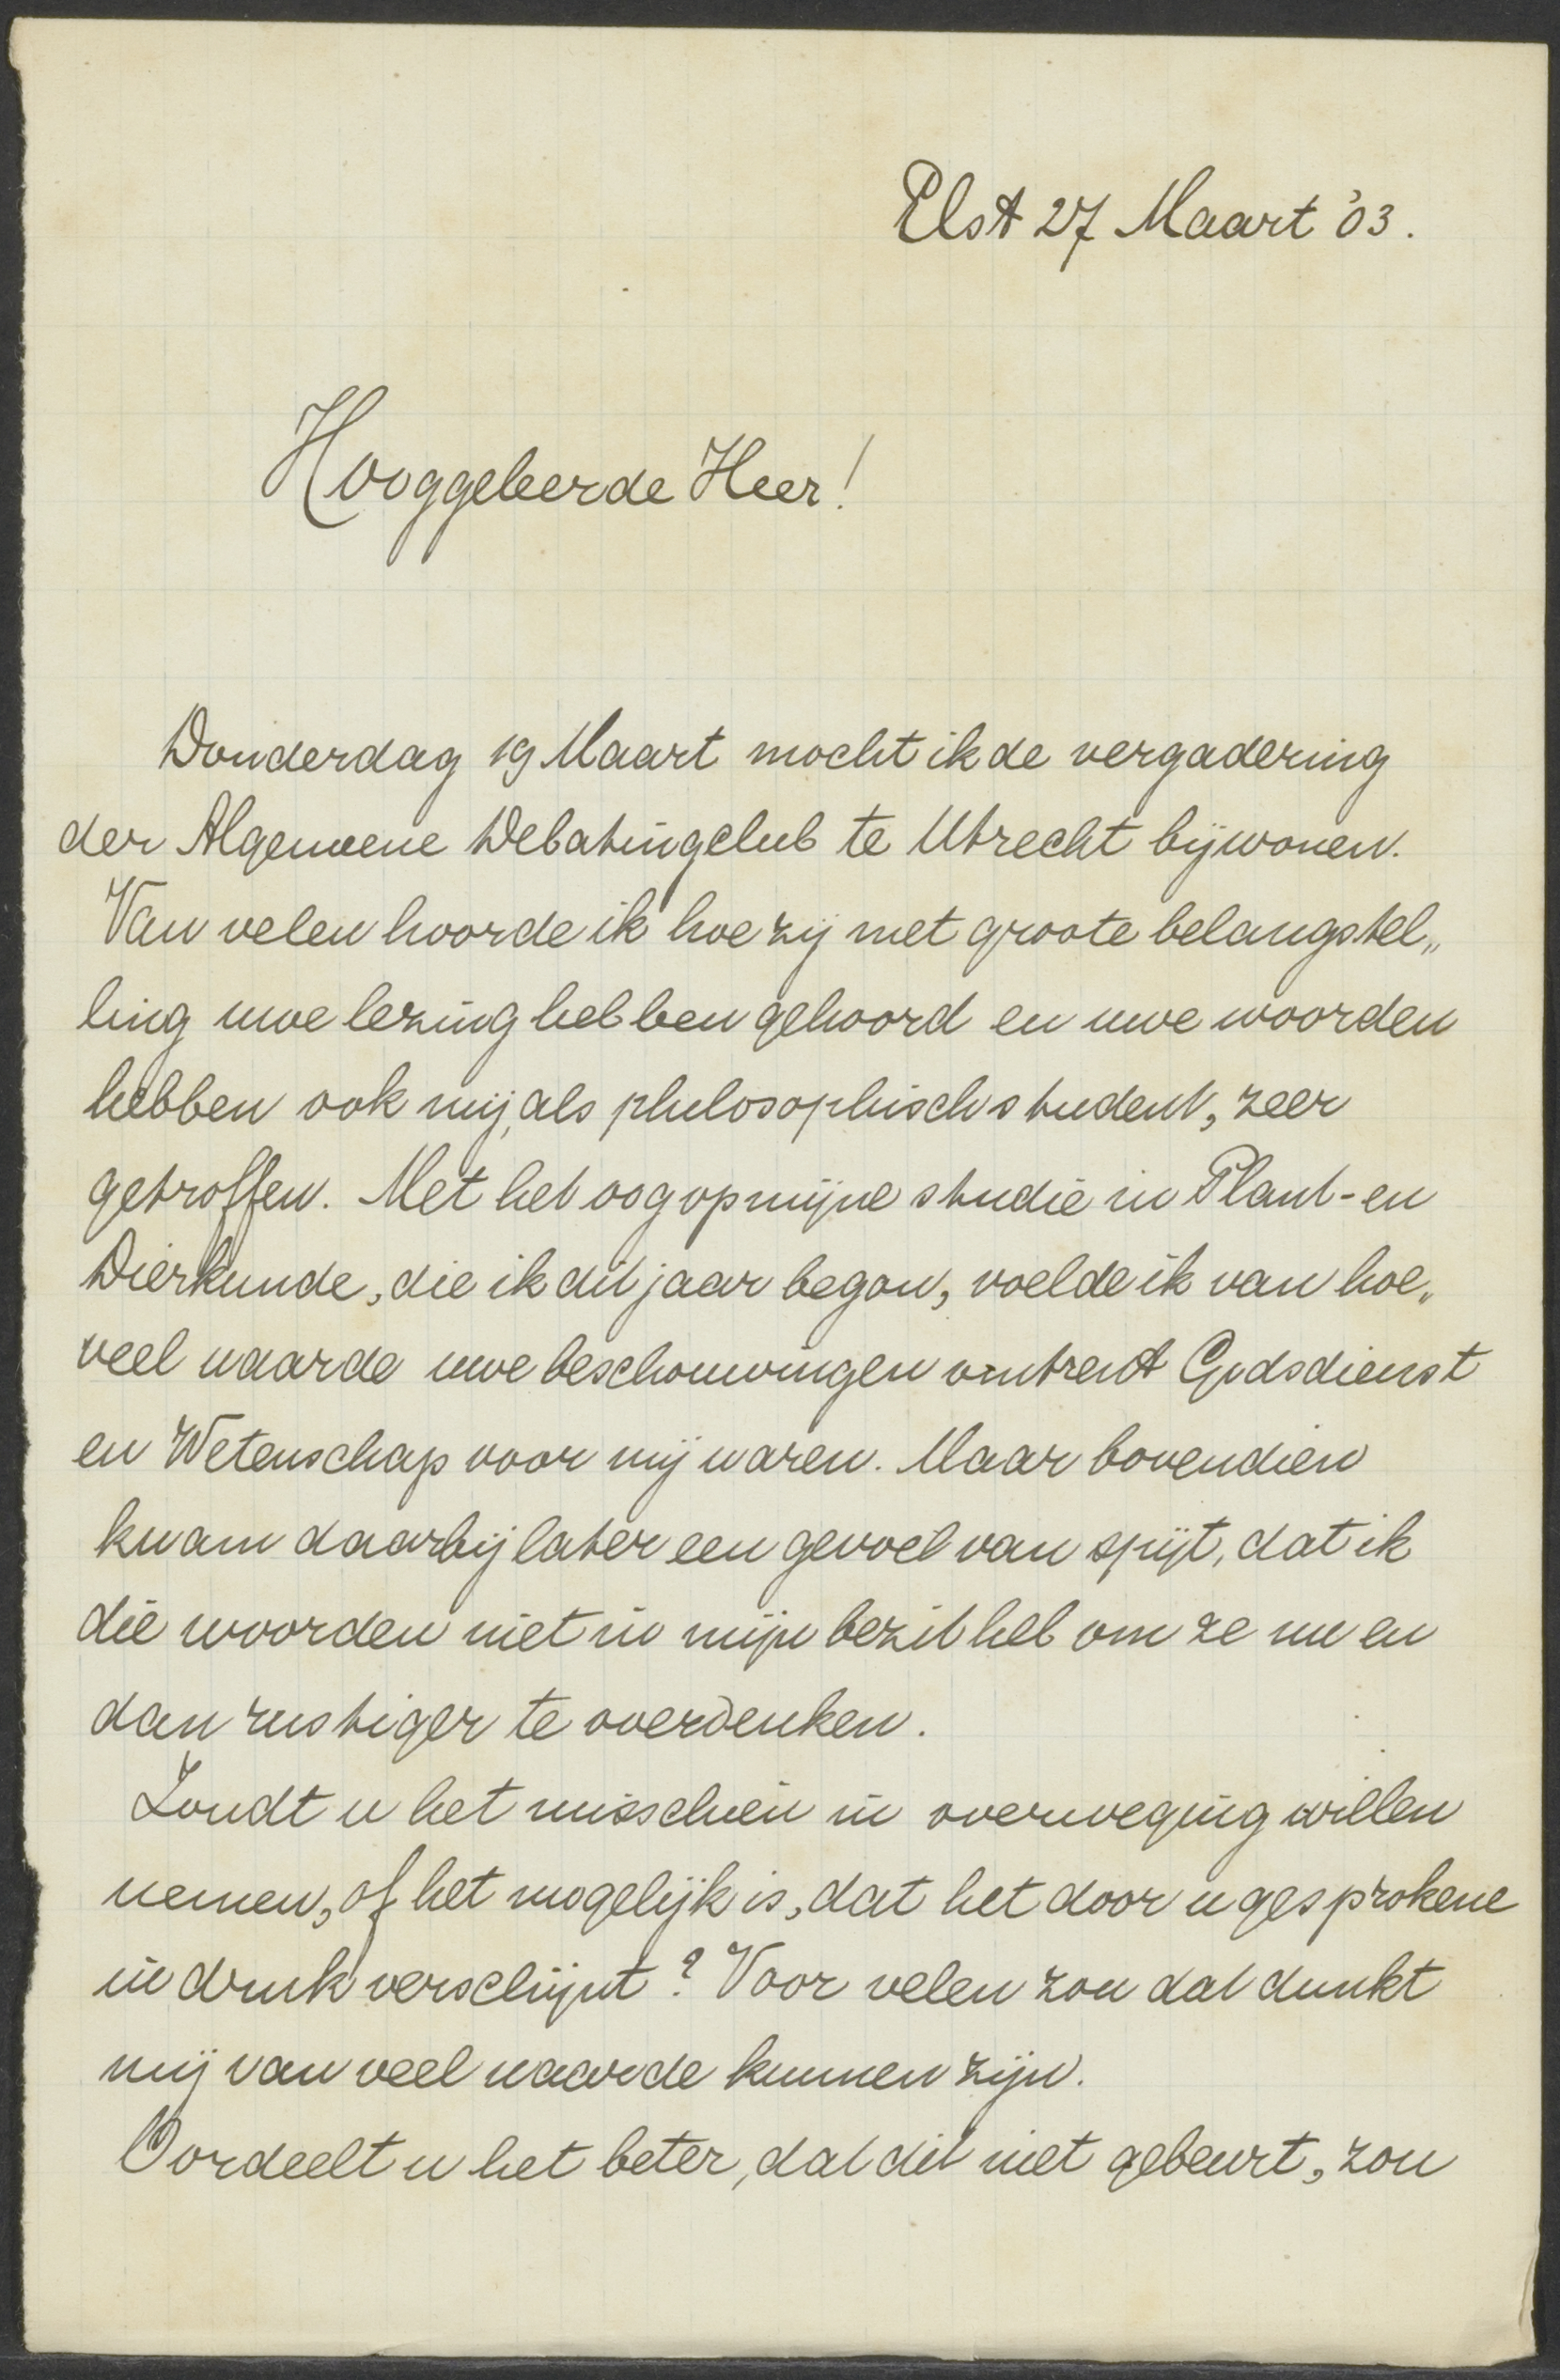 Elst 27 Maart '03.
Hooggeleerde Heer!
Donderdag 19 Maart mocht ik de vergadering
der Algemeene Debatingclub te Utrecht bijwonen.
Van velen hoorde ik hoe zij met groote belangstel„
ling uwe lezing hebben gehoord en uwe woorden
hebben ook mij, als philosophisch student, zeer
getroffen. Met het oog op mijne studie in Plant- en
Dierkunde, die ik dit jaar begon, voelde ik van hoe„
veel waarde uwe beschouwingen omtrent Godsdienst
en Wetenschap voor mij waren. Maar bovendien
kwam daarbij later een gevoel van spijt, dat ik
die woorden niet in mijn bezit heb om ze nu en
dan rustiger te overdenken.
Zoudt u het misschien in overweging willen
nemen, of het mogelijk is, dat het door u gesprokene
in druk verschijnt? Voor velen zou dat dunkt
mij van veel waarde kunnen zijn.
Oordeelt u het beter, dat dit niet gebeurt, zou